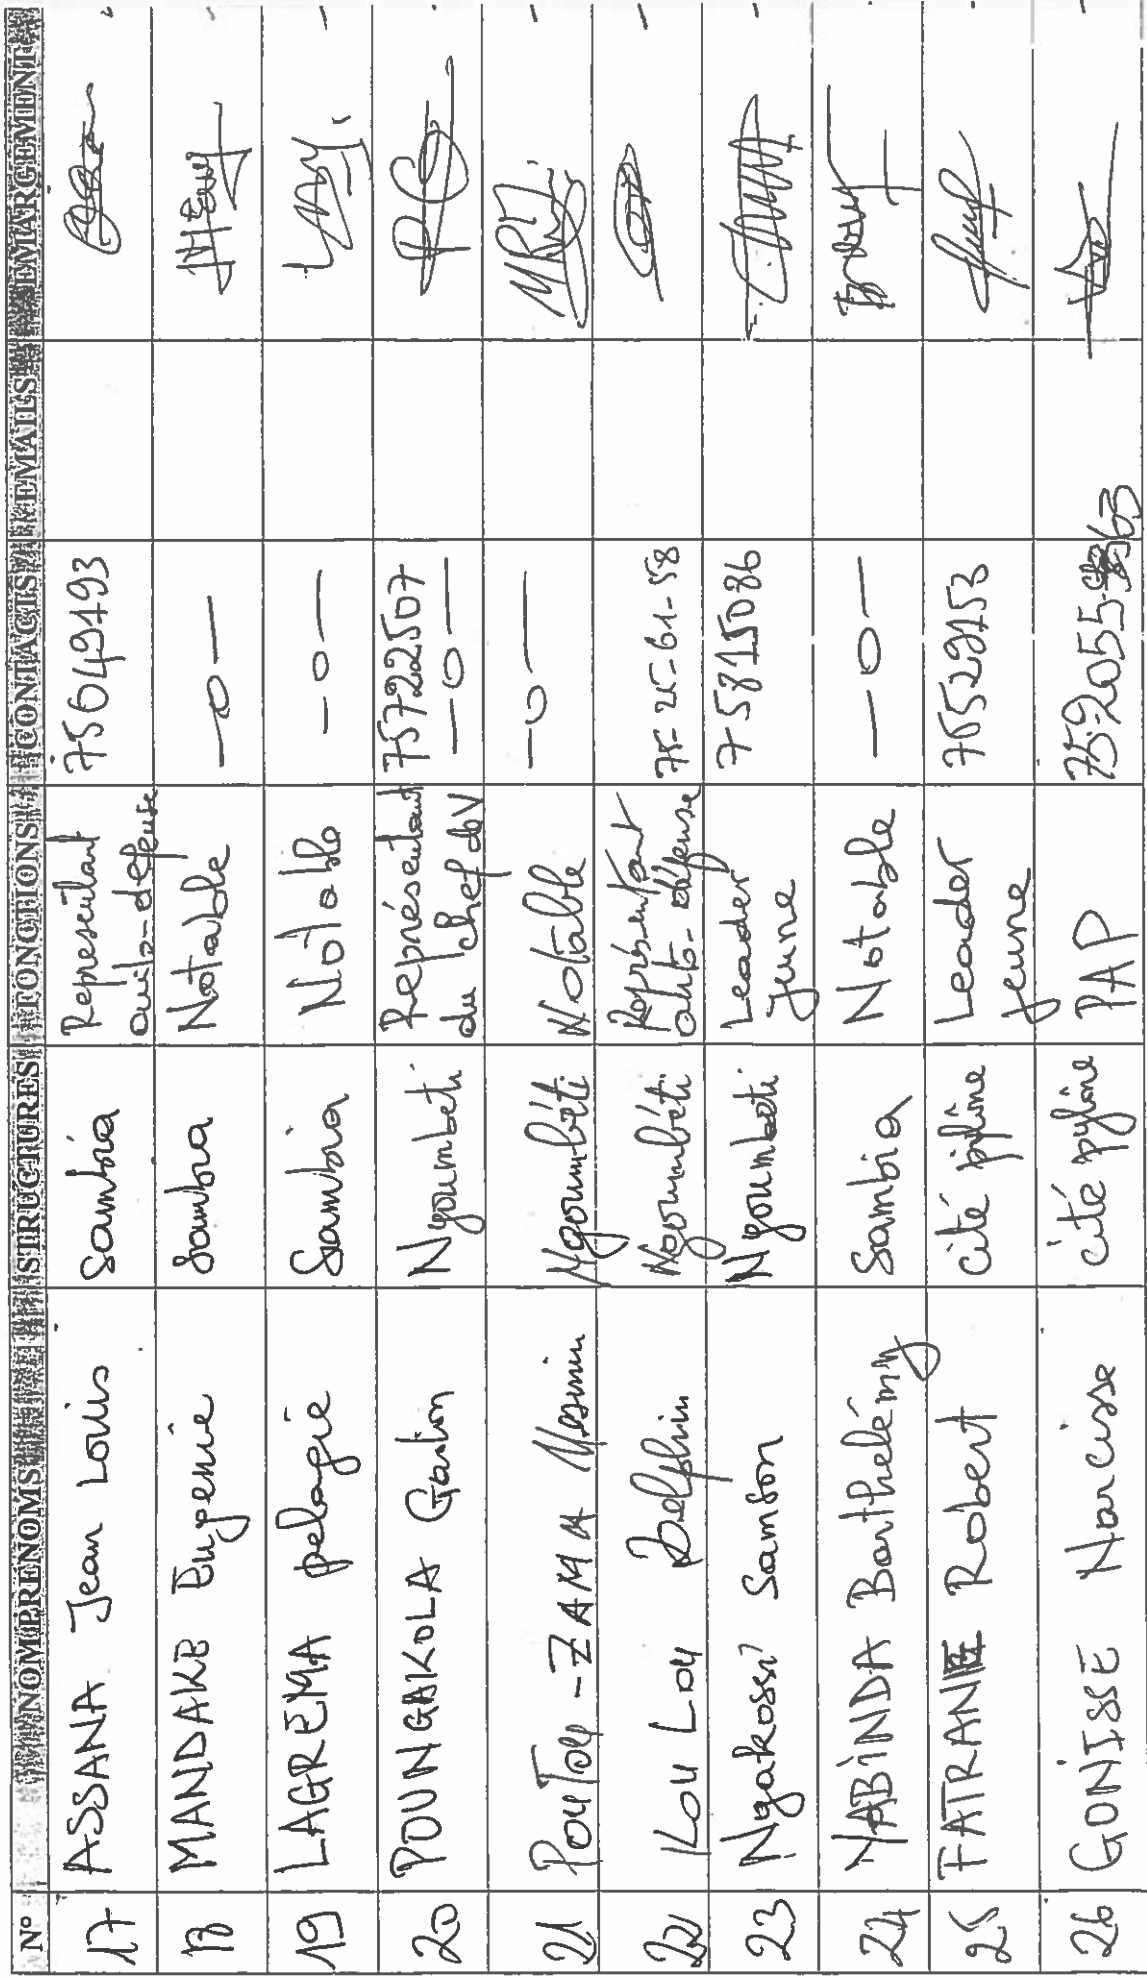 N° NOM PRENOMS STRUCTURES FONCTIONS CONTACTS EMAILS EMARGEMENT
17 ASSANA Jean Louis Sambia Representant auto-défense 75649193
18 MANDAKE Eugenie Sambia Notable —o—
19 LAGREMA pelagie Sambia Notable —o—
20 POUNGAKOLA Gaston Ngoumbeti Représentant du Chef de V 75722507 —o—
21 PouTou-ZAMA Ngoumbéti Notable —o—
22 KouLou Delphin Ngoumbéti Représentant auto-défense 75-25-61-58
23 Ngakossi Samson Ngoumbeti Leader jeune 75815086
24 YABINDA Barthélémy Sambia Notable —o—
25 FATRANE Robert cité pylône Leader jeune 75529153
26 GONISSE Narcisse cité pylône PAP